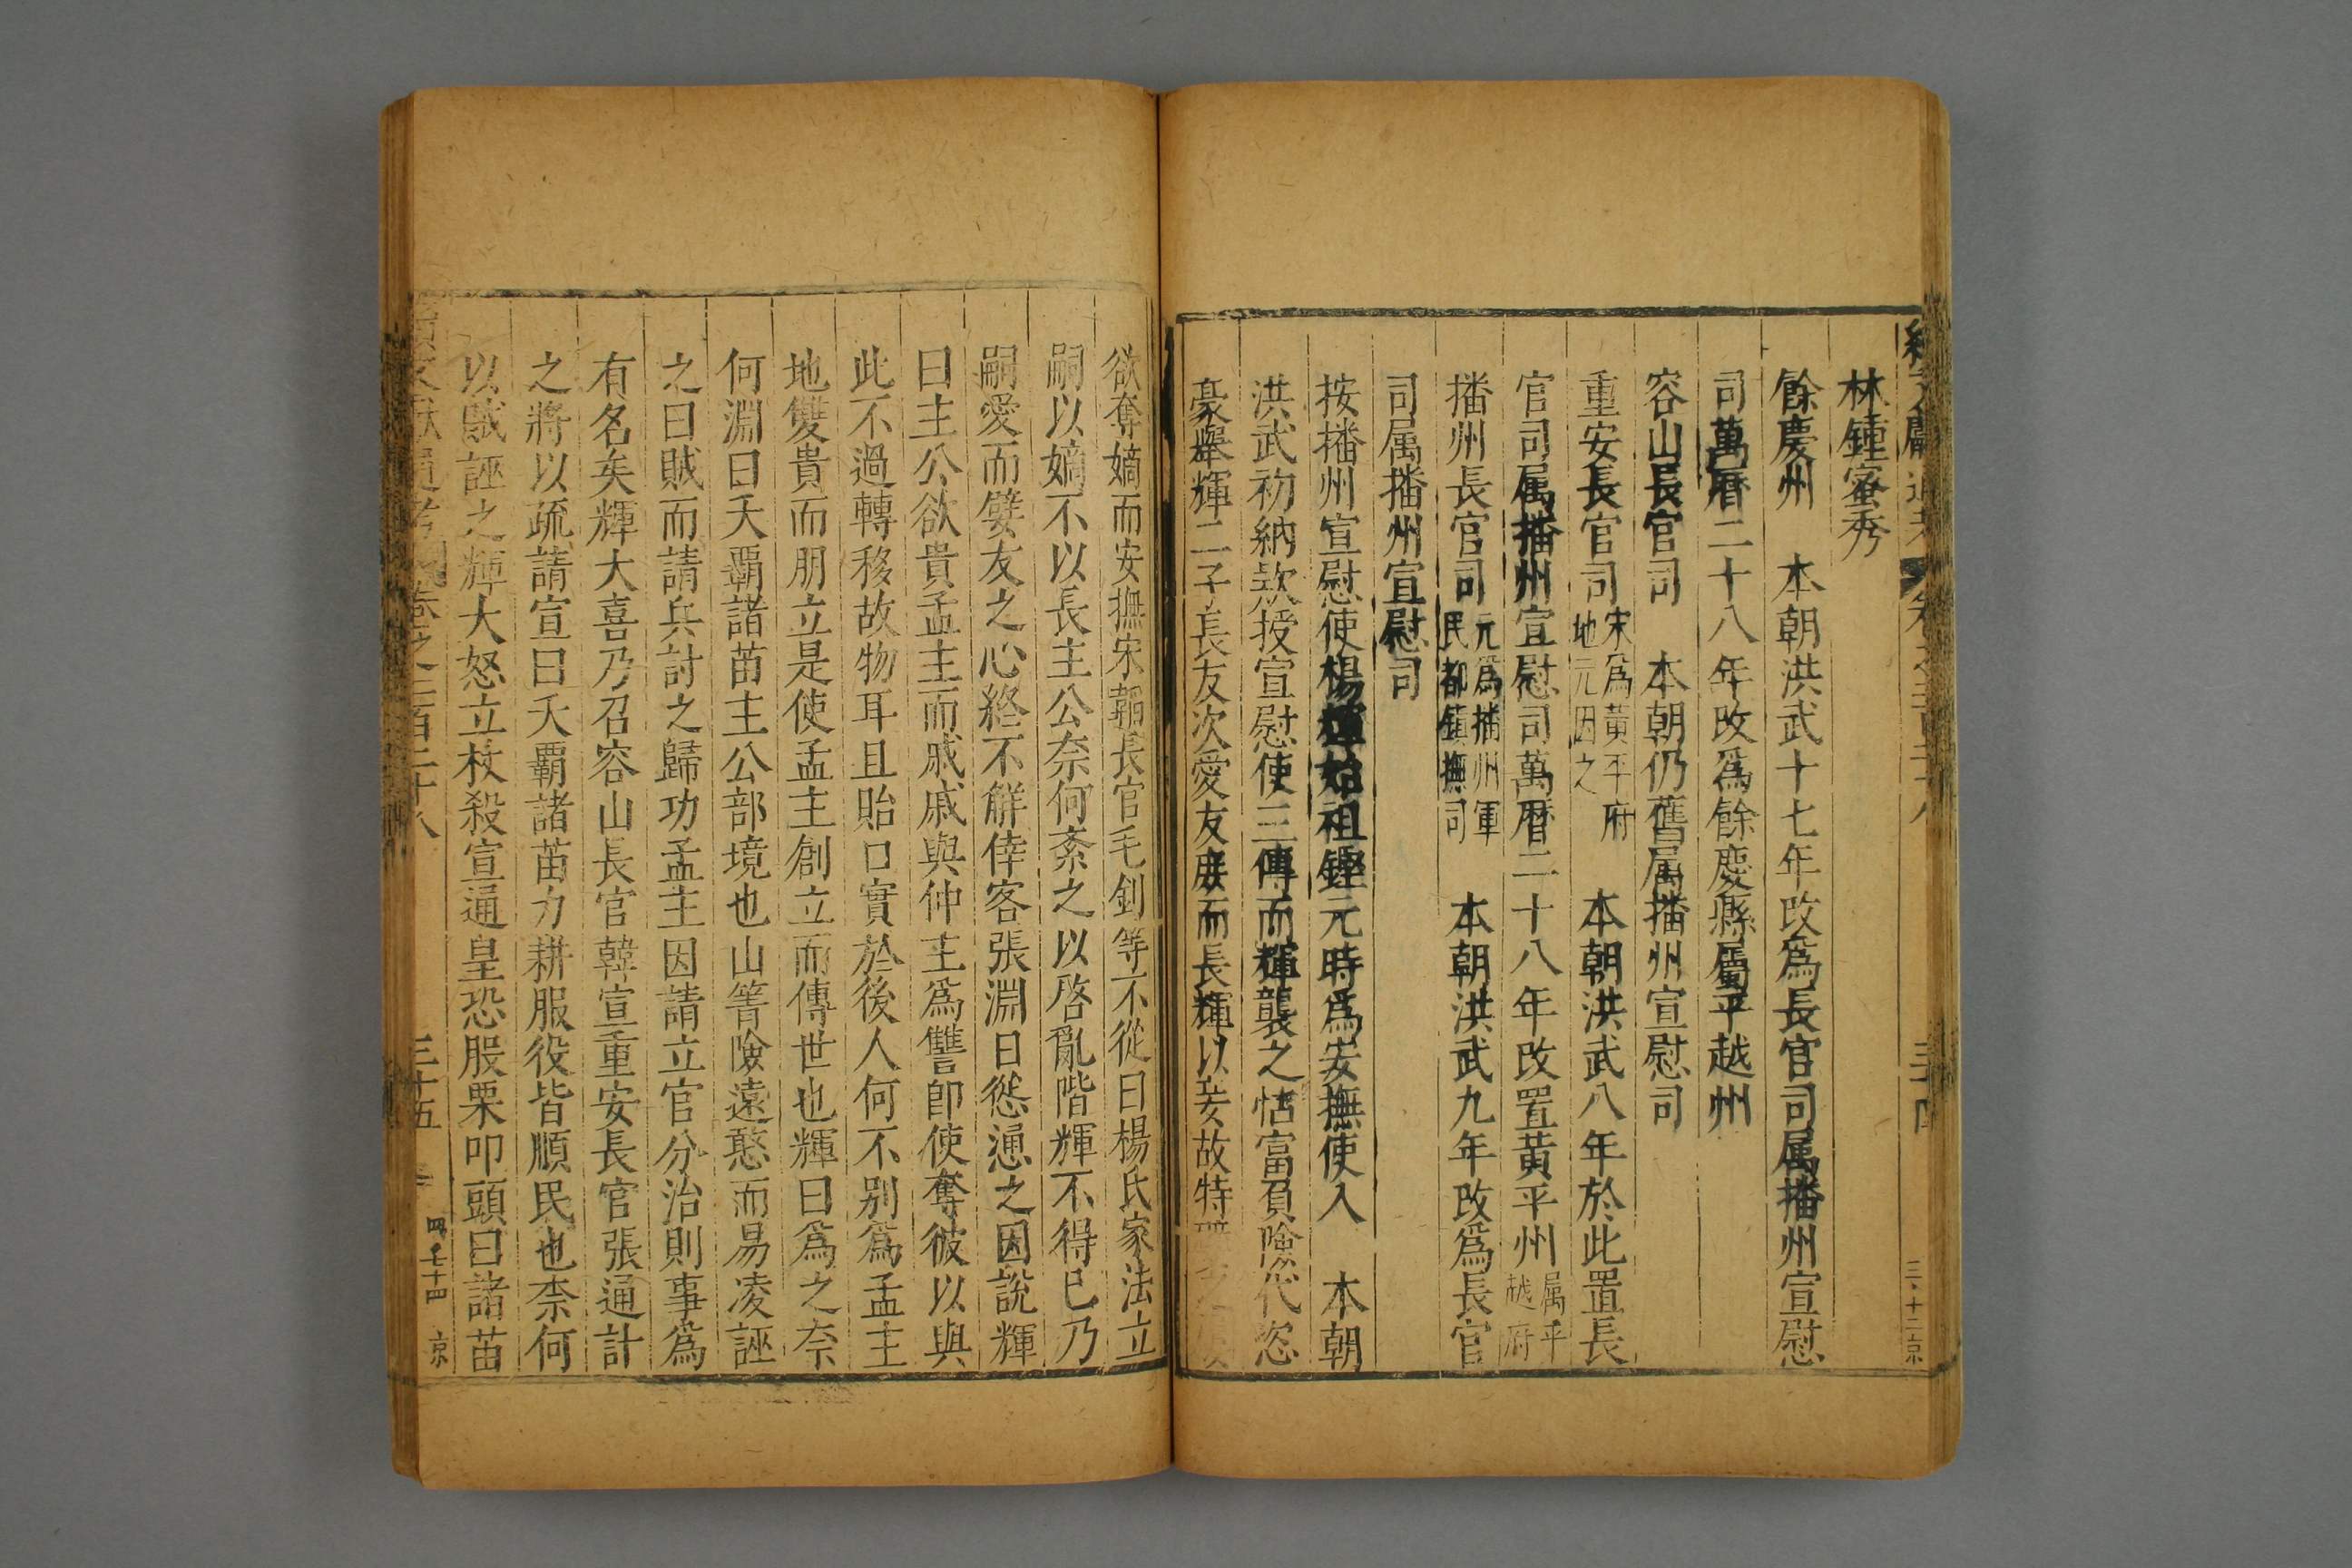 林鍾蜜秀
餘慶州　本朝洪武十七年改爲長官司属播州宣慰
司萬曆二十八年改爲餘慶縣屬平越州
容山長官司　本朝仍舊属播州宣慰司
重安長官司宋爲黄平府地元因之　本朝洪武八年於此置長
官司属播州宣慰司萬曆二十八年改置黄平州属平越府
播州長官司元爲播州軍民都鎮撫司　本朝洪武九年改爲長官
司属播州宣慰司
按播州宣慰使楊輝始祖鏗元時爲安撫使入　本朝
洪武初納欵授宣慰使三傳而輝襲之怙富負險代恣
豪舉輝二子長友次愛友庶而長輝以妾故特
欲奪嫡而安撫宋韜長官毛釗等不從曰楊氏家法立
嗣以嫡不以長主公奈何紊之以啓亂階輝不得已乃
嗣愛而嬖友之心終不解倖客張淵日慫慂之因說輝
曰主公欲貴孟主而戚戚與仲主爲讐即使奪彼以與
此不過轉移故物耳且貽口實於後人何不別爲孟主
地雙貴而朋立是使孟主創立而傳世也輝曰爲之奈
何淵曰夭覇諸苗主公部境也山箐險遠憨而易凌誣
之曰賊而請兵討之歸功孟主因請立官分治則事爲
有名矣輝大喜乃召容山長官韓宣重安長官張通計
之將以疏請宣曰夭覇諸苗力耕服役皆順民也柰何
以賊誣之輝大怒立杖殺宣通皇恐股栗叩頭曰諸苗
卷之二百三十八
三十五